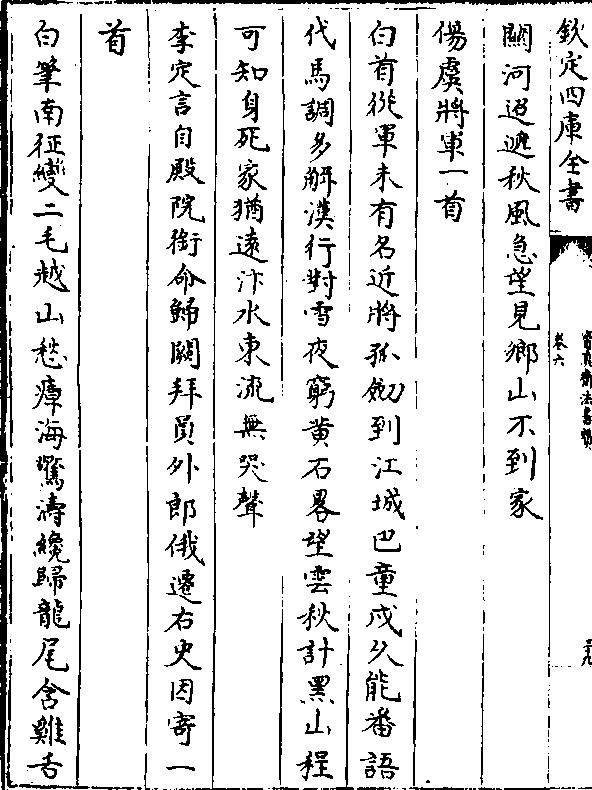 欽定四庫全書
寶真齋法書贊
卷六
關河迢遞秋風急望見鄉山不到家
傷虞將軍一首
白首從軍未有名近將孤劒到江城巴童戍久能番語
代馬調多解漢行對雪夜窮黄石畧望雲秋計黑山程
可知身死家猶遠汴水東流無哭聲
李定言自殿院銜命歸闕拜員外郎俄遷右史因寄一
首
白筆南征變二毛越山愁瘴海驚濤纔歸龍尾含雞舌